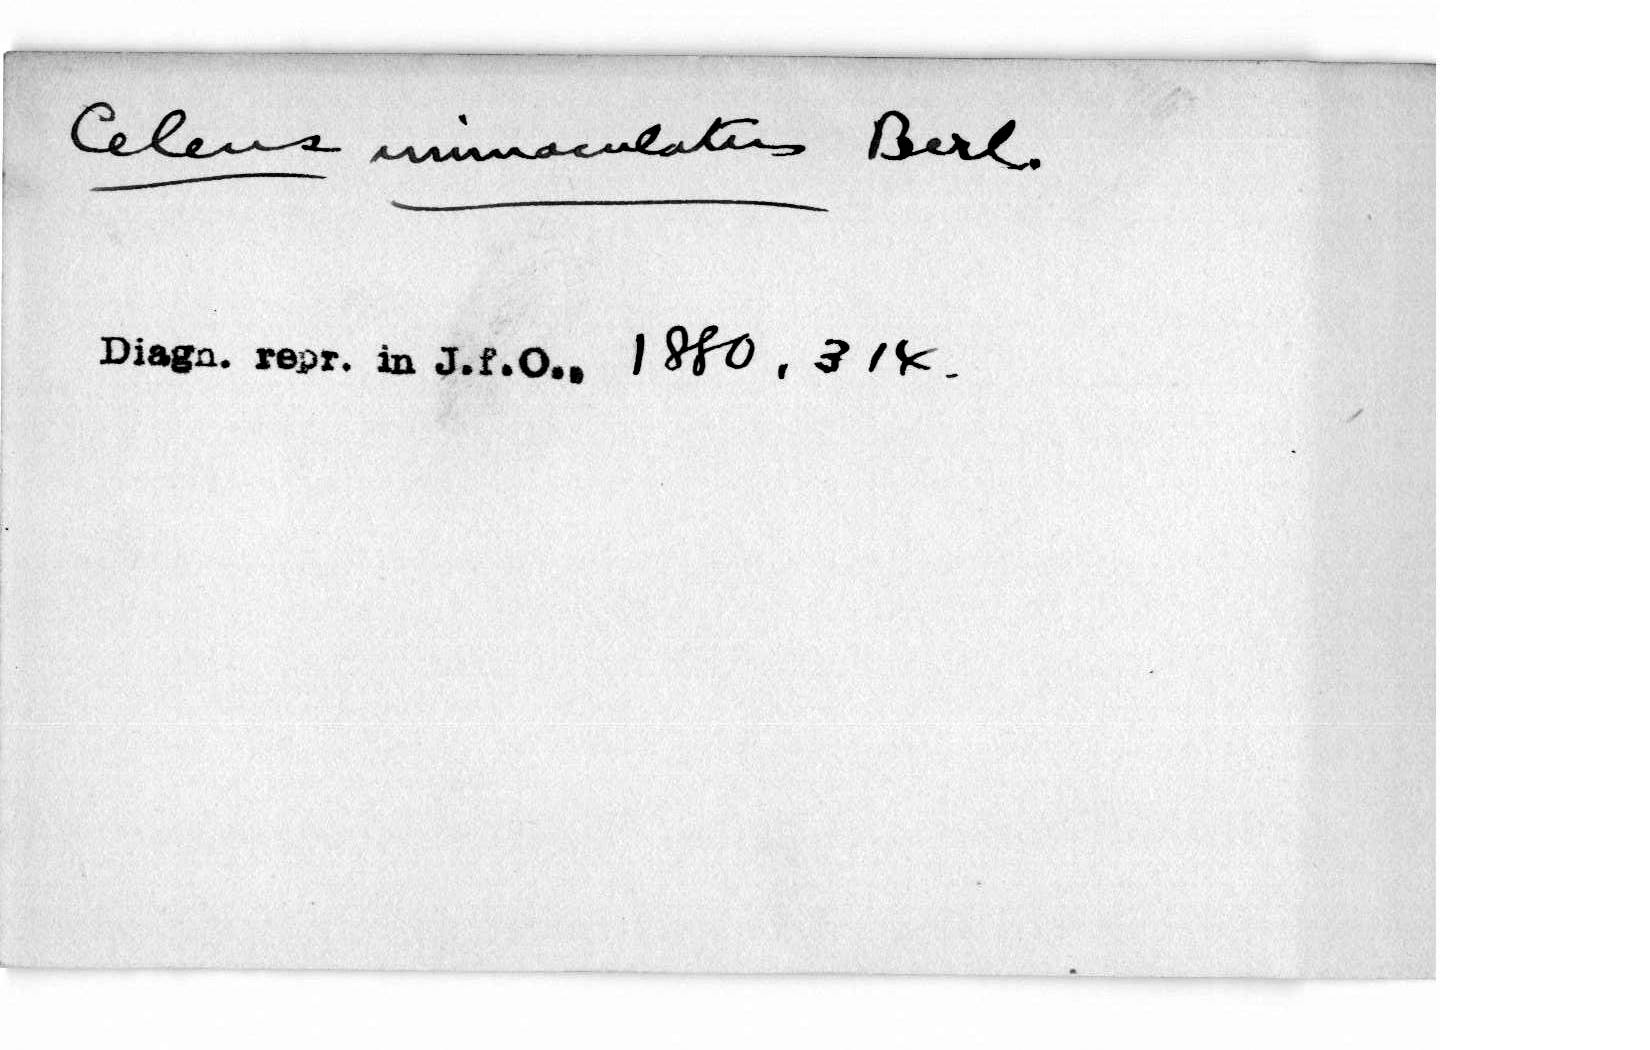 Celeus immaculatus Berl.
Diagn. repr. in J.f.O., 1880, 314.